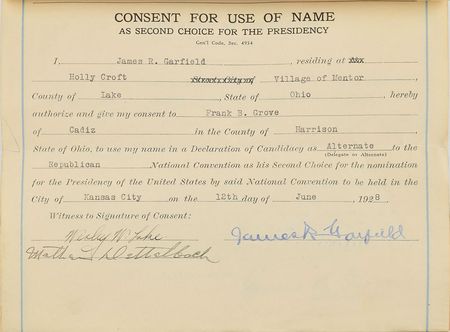 CONSENT FOR USE OF NAME
AS SECOND CHOICE FOR THE PRESIDENCY
Gen'l Code, Sec. 4954
I, James R. Garfield, residing at
Holly Croft Village of Mentor,
County of Lake, State of Ohio, hereby
authorize and give my consent to Frank B. Grove
of Cadiz in the County of Harrison
State of Ohio, to use my name in a Declaration of Candidacy as Alternate to the
(Delegate or Alternate)
Republican National Convention as his Second Choice for the nomination
for the Presidency of the United States by said National Convention to be held in the
City of Kansas City on the 12th day of June, 1928
Witness to Signature of Consent:
Wesley W. Lake
James R Garfield
Dettelbach